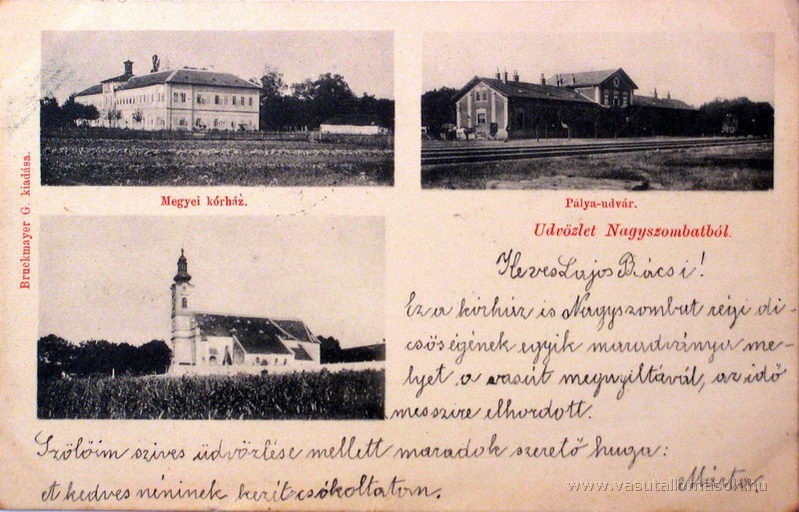 Bruckmayer G. kiadása.
Megyei kórház.
Pálya-udvár.
Udvözlet Nagyszombatból.
Kedves Lajos Bácsi!
Ez a kórház is Nagyszombat régi di-
csőségének egyik maradványa me-
lyet a vasút megnyiltával, az idő
messzire elhordott.
Szülőim szives üdvözlése mellett maradok szerető huga:
A kedves néninek kezét csókoltatom.
Márta
www.vasutallomasok.hu